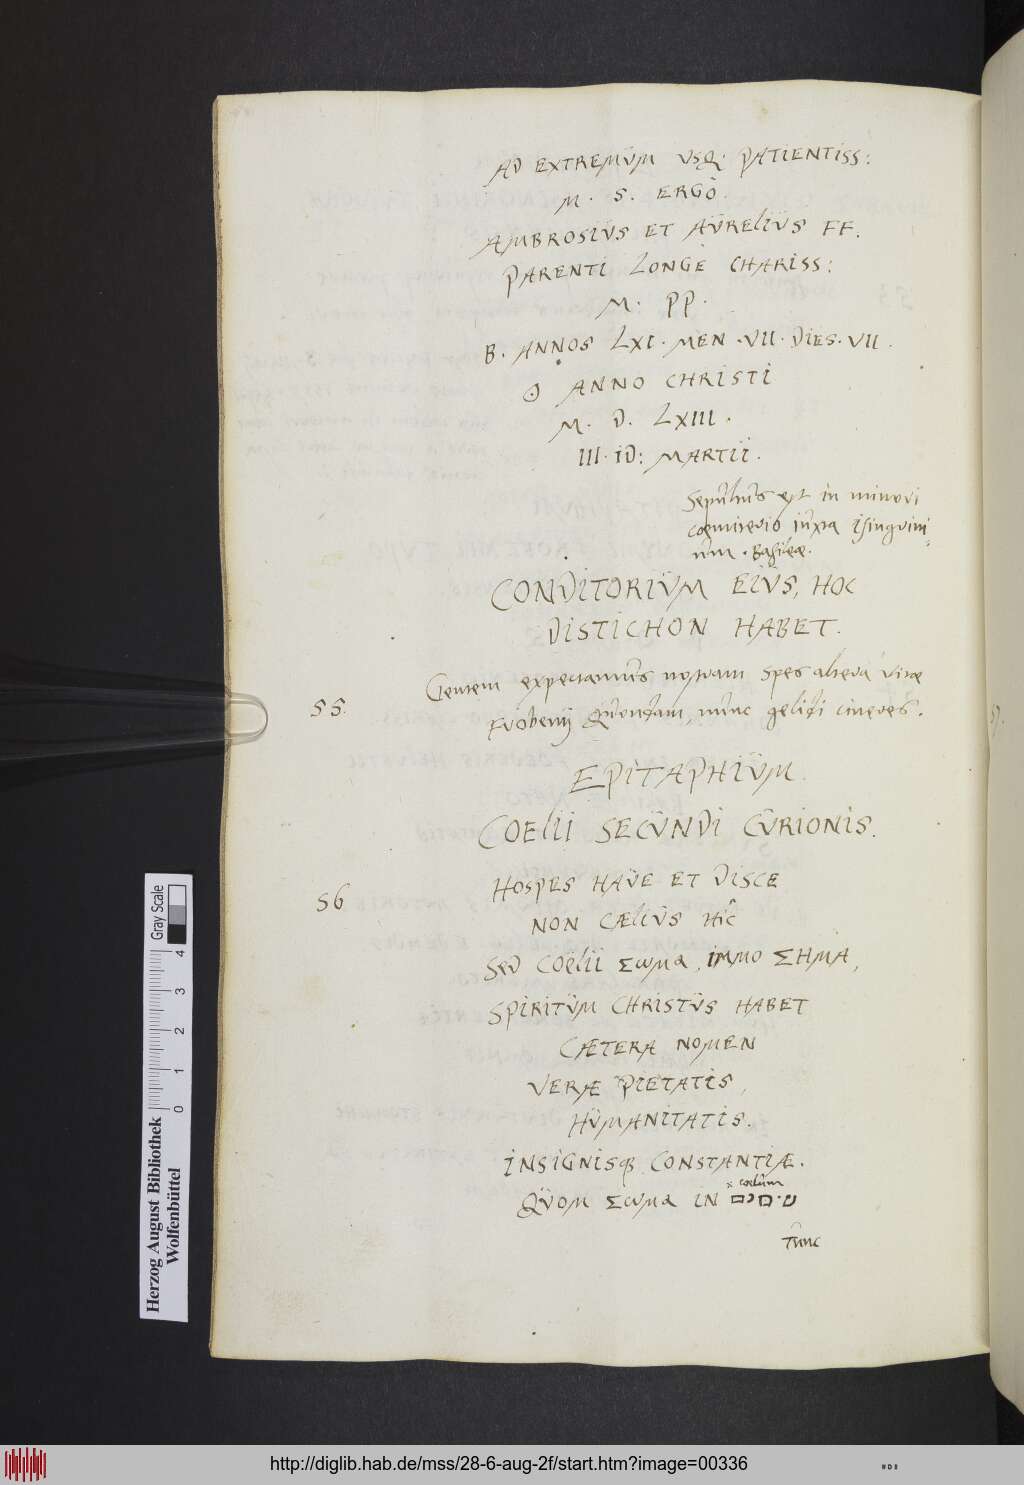 AD EXTREMŬM VSQ. PATIENTISS:
M. S. ERGÒ.
AMBROSIŬS ET AŬRELIŬS FF.
PARENTI LONGÈ CHARISS:
M. PP.
B. ANNOS LXI. MEN. VII. DIES. VII.
ʘ ANNO CHRISTI
M. D. LXIII.
III. ID: MARTII.
Sepŭltŭs est in minori
coemiterio iŭxta
Basileae.
CONDITORIŬM EIŬS, HOC
DISTICHON HABET.
55. Gentem expectamŭs nostram spes altera vitae
Frobenij qŭondam, nŭnc gelidi cineres.
EPITAPHIŬM
COELII SECŬNDI CŬRIONIS.
56 HOSPES HAŬE ET DISCE
NON CÆLIŬS HÎC
SED COËLII Σωμα, IMMO ΣΗΜΑ,
SPIRITŬM CHRISTŬS HABET
CÆTERA NOMEN
VERÆ PIETATIS,
HŬMANITATIS.
INSIGNISQ. CONSTANTIÆ.
* coelŭm
QŬOM Σωμα IN
Tŭnc
Herzog August Bibliothek
Wolfenbüttel
0 1 2 3 4
Gray Scale
http://diglib.hab.de/mss/28-6-aug-2f/start.htm?image=00336